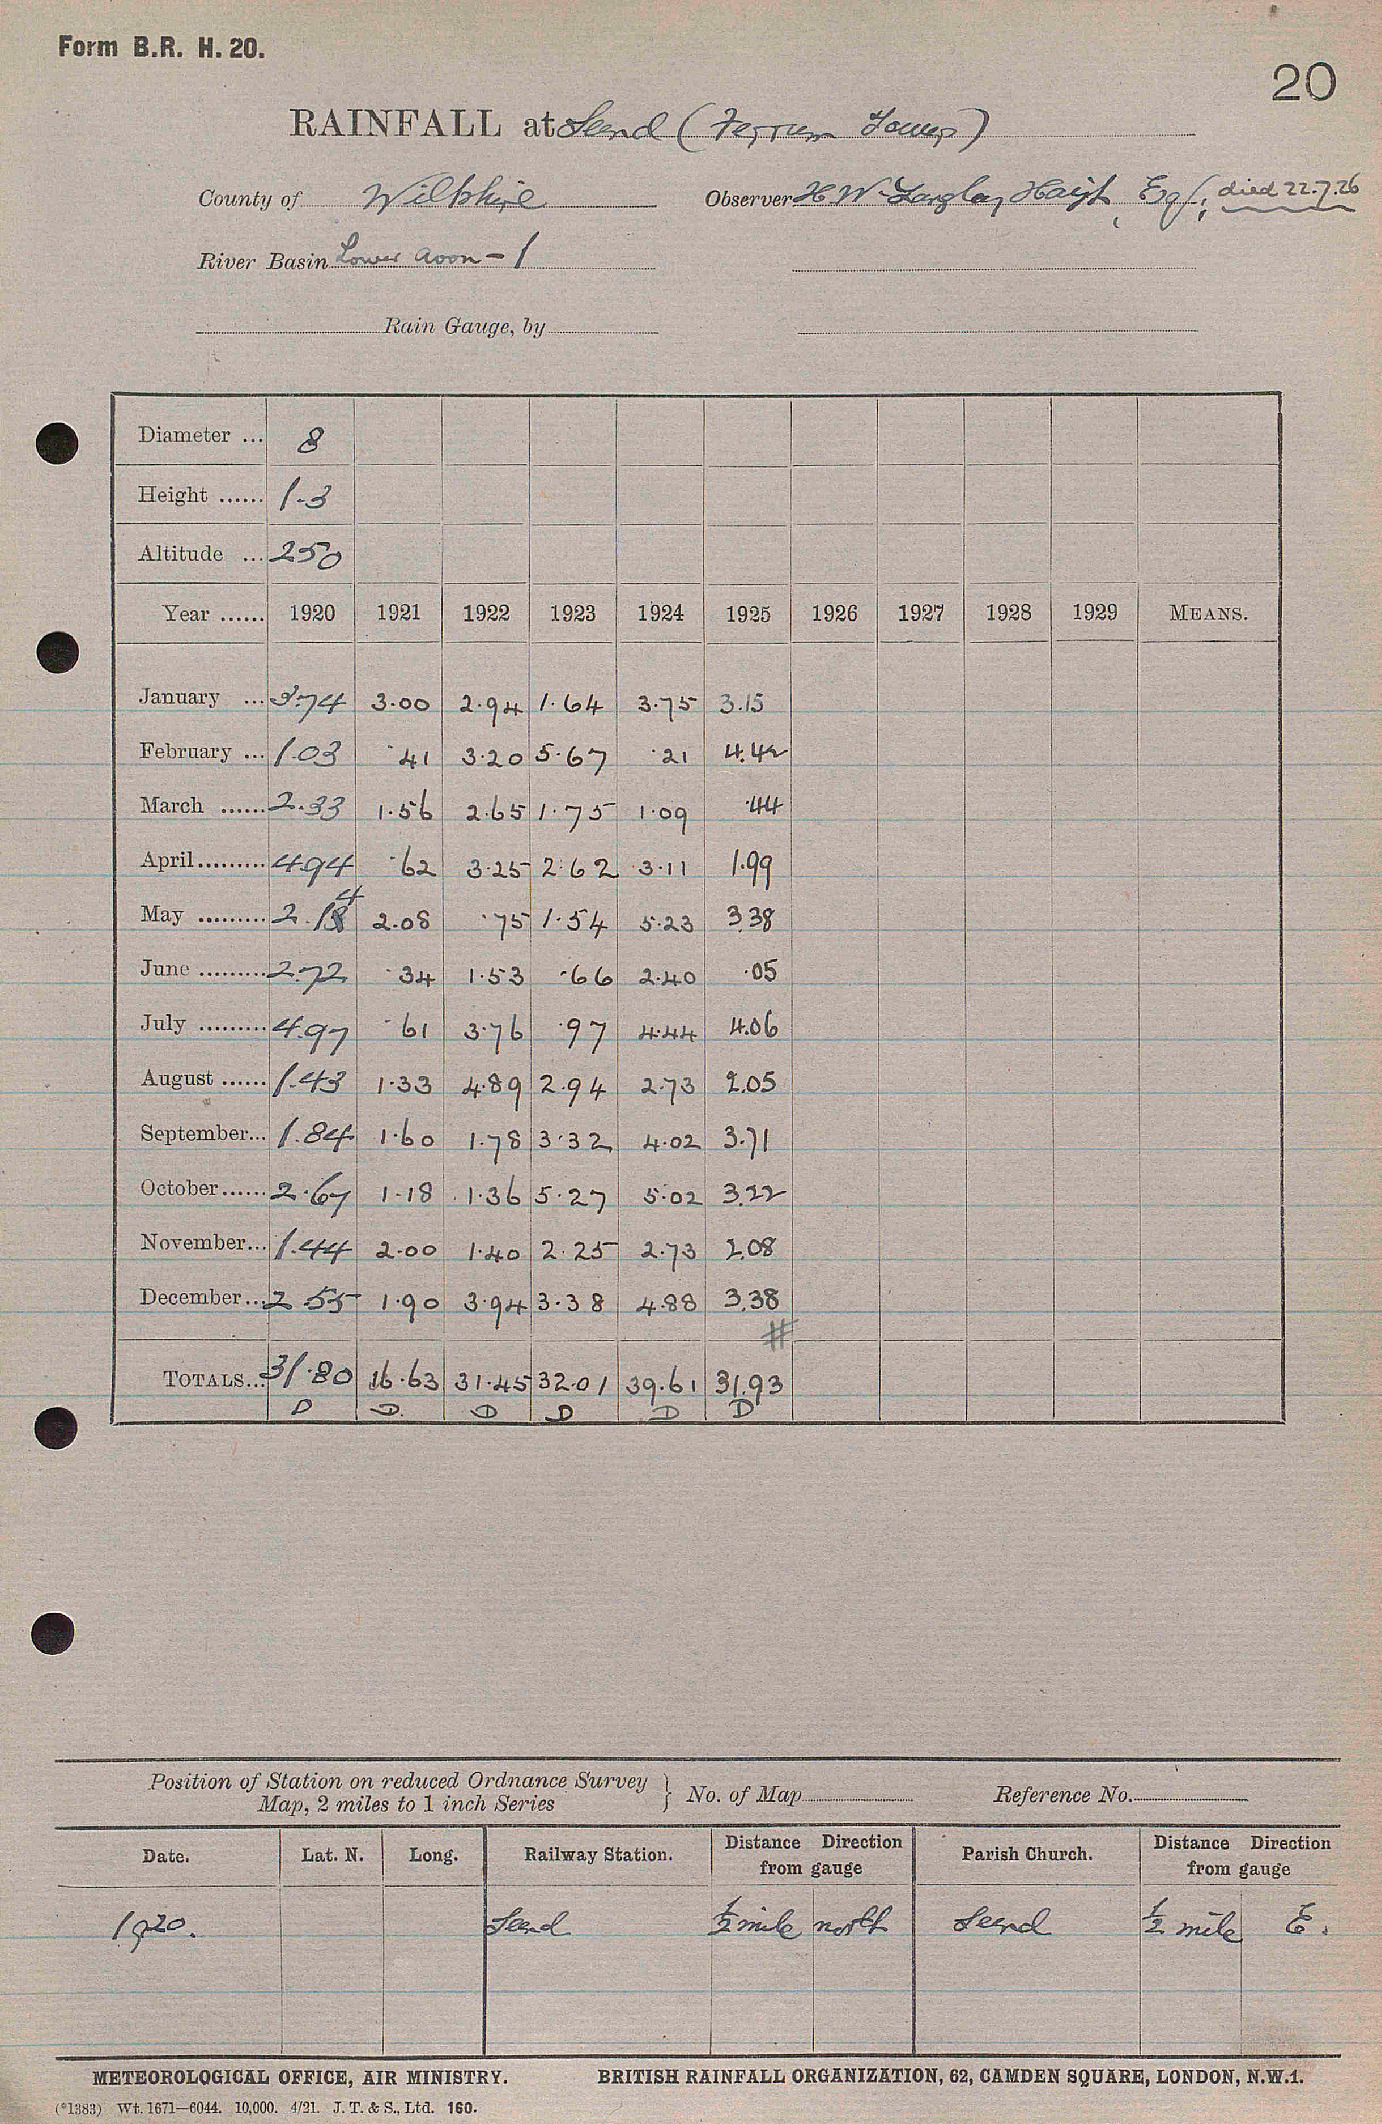 Form B.R. H. 20.
20
RAINFALL at Seend (Ferrum Towers)
County of Wiltshire Observer H W Langley Haigh, Esq, died 22.7.26
River Basin Lower Avon - 1
Rain Gauge, by
Diameter ... 8
Height ...... 1-3
Altitude ... 250
Year ...... 1920 1921 1922 1923 1924 1925 1926 1927 1928 1929 MEANS.
January ... 3.74 3.00 2.94 1.64 3.75 3.15
February ... 1.03 .41 3.20 5.67 .21 4.42
March ...... 2.33 1.56 2.65 1.75 1.09 .44
April......... 4.94 .62 3.25 2.62 3.11 1.99
May ......... 2.14 2.08 .75 1.54 5.23 3.38
June ......... 2.72 .34 1.53 .66 2.40 .05
July ......... 4.97 .61 3.76 .97 4.44 4.06
August ...... 1.43 1.33 4.89 2.94 2.73 2.05
September... 1.84 1.60 1.78 3.32 4.02 3.71
October...... 2.67 1.18 1.36 5.27 5.02 3.22
November... 1.44 2.00 1.40 2.25 2.73 2.08
December... 2.55 1.90 3.94 3.38 4.88 3.38
#
TOTALS... 31.80 16.63 31.45 32.01 39.61 31.93
D D D D D D
Position of Station on reduced Ordnance Survey
Map, 2 miles to 1 inch Series } No. of Map Reference No.
Date. Lat. N. Long. Railway Station. Distance Direction from gauge Parish Church. Distance Direction from gauge
1920. Seend ½ mile north Seend ½ mile E.
METEOROLOGICAL OFFICE, AIR MINISTRY. BRITISH RAINFALL ORGANIZATION, 62, CAMDEN SQUARE, LONDON, N.W.1.
(*1383) Wt. 1671—6044. 10,000. 4/21. J. T. & S., Ltd. 160.